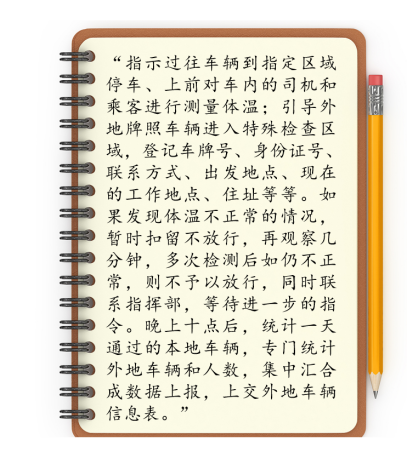 “指示过往车辆到指定区域
停车、上前对车内的司机和
乘客进行测量体温；引导外
地牌照车辆进入特殊检查区
域，登记车牌号、身份证号、
联系方式、出发地点、现在
的工作地点、住址等等。如
果发现体温不正常的情况，
暂时扣留不放行，再观察几
分钟，多次检测后如仍不正
常，则不予以放行，同时联
系指挥部，等待进一步的指
令。晚上十点后，统计一天
通过的本地车辆，专门统计
外地车辆和人数，集中汇合
成数据上报，上交外地车辆
信息表。”